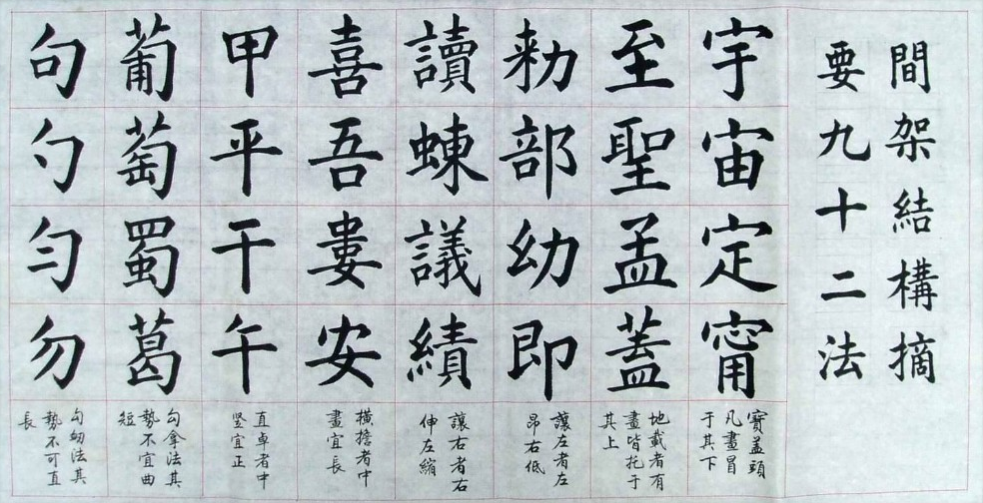 間架結構摘
要九十二法
宇宙定甯
寶盖頭
凡畫冒
于其下
至聖孟蓋
地載者有
畫皆托于
其上
勑部幼即
讓左者左
昂右低
讀蝀議績
讓右者右
伸左縮
喜吾婁安
橫擔者中
畫宜長
甲平干午
直卓者中
竖宜正
葡萄蜀葛
勾拿法其
勢不宜曲
短
句勺勻勿
勾𠛎法其
勢不可直
長